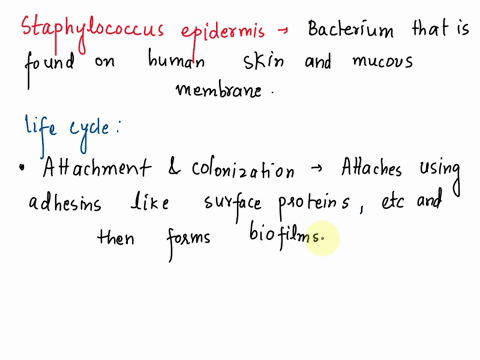 Staphylococcus epidermis → Bacterium that is
found on human skin and mucous
membrane.
life cycle:
• Attachment & colonization → Attaches using
adhesins like surface proteins, etc and
then forms biofilms.